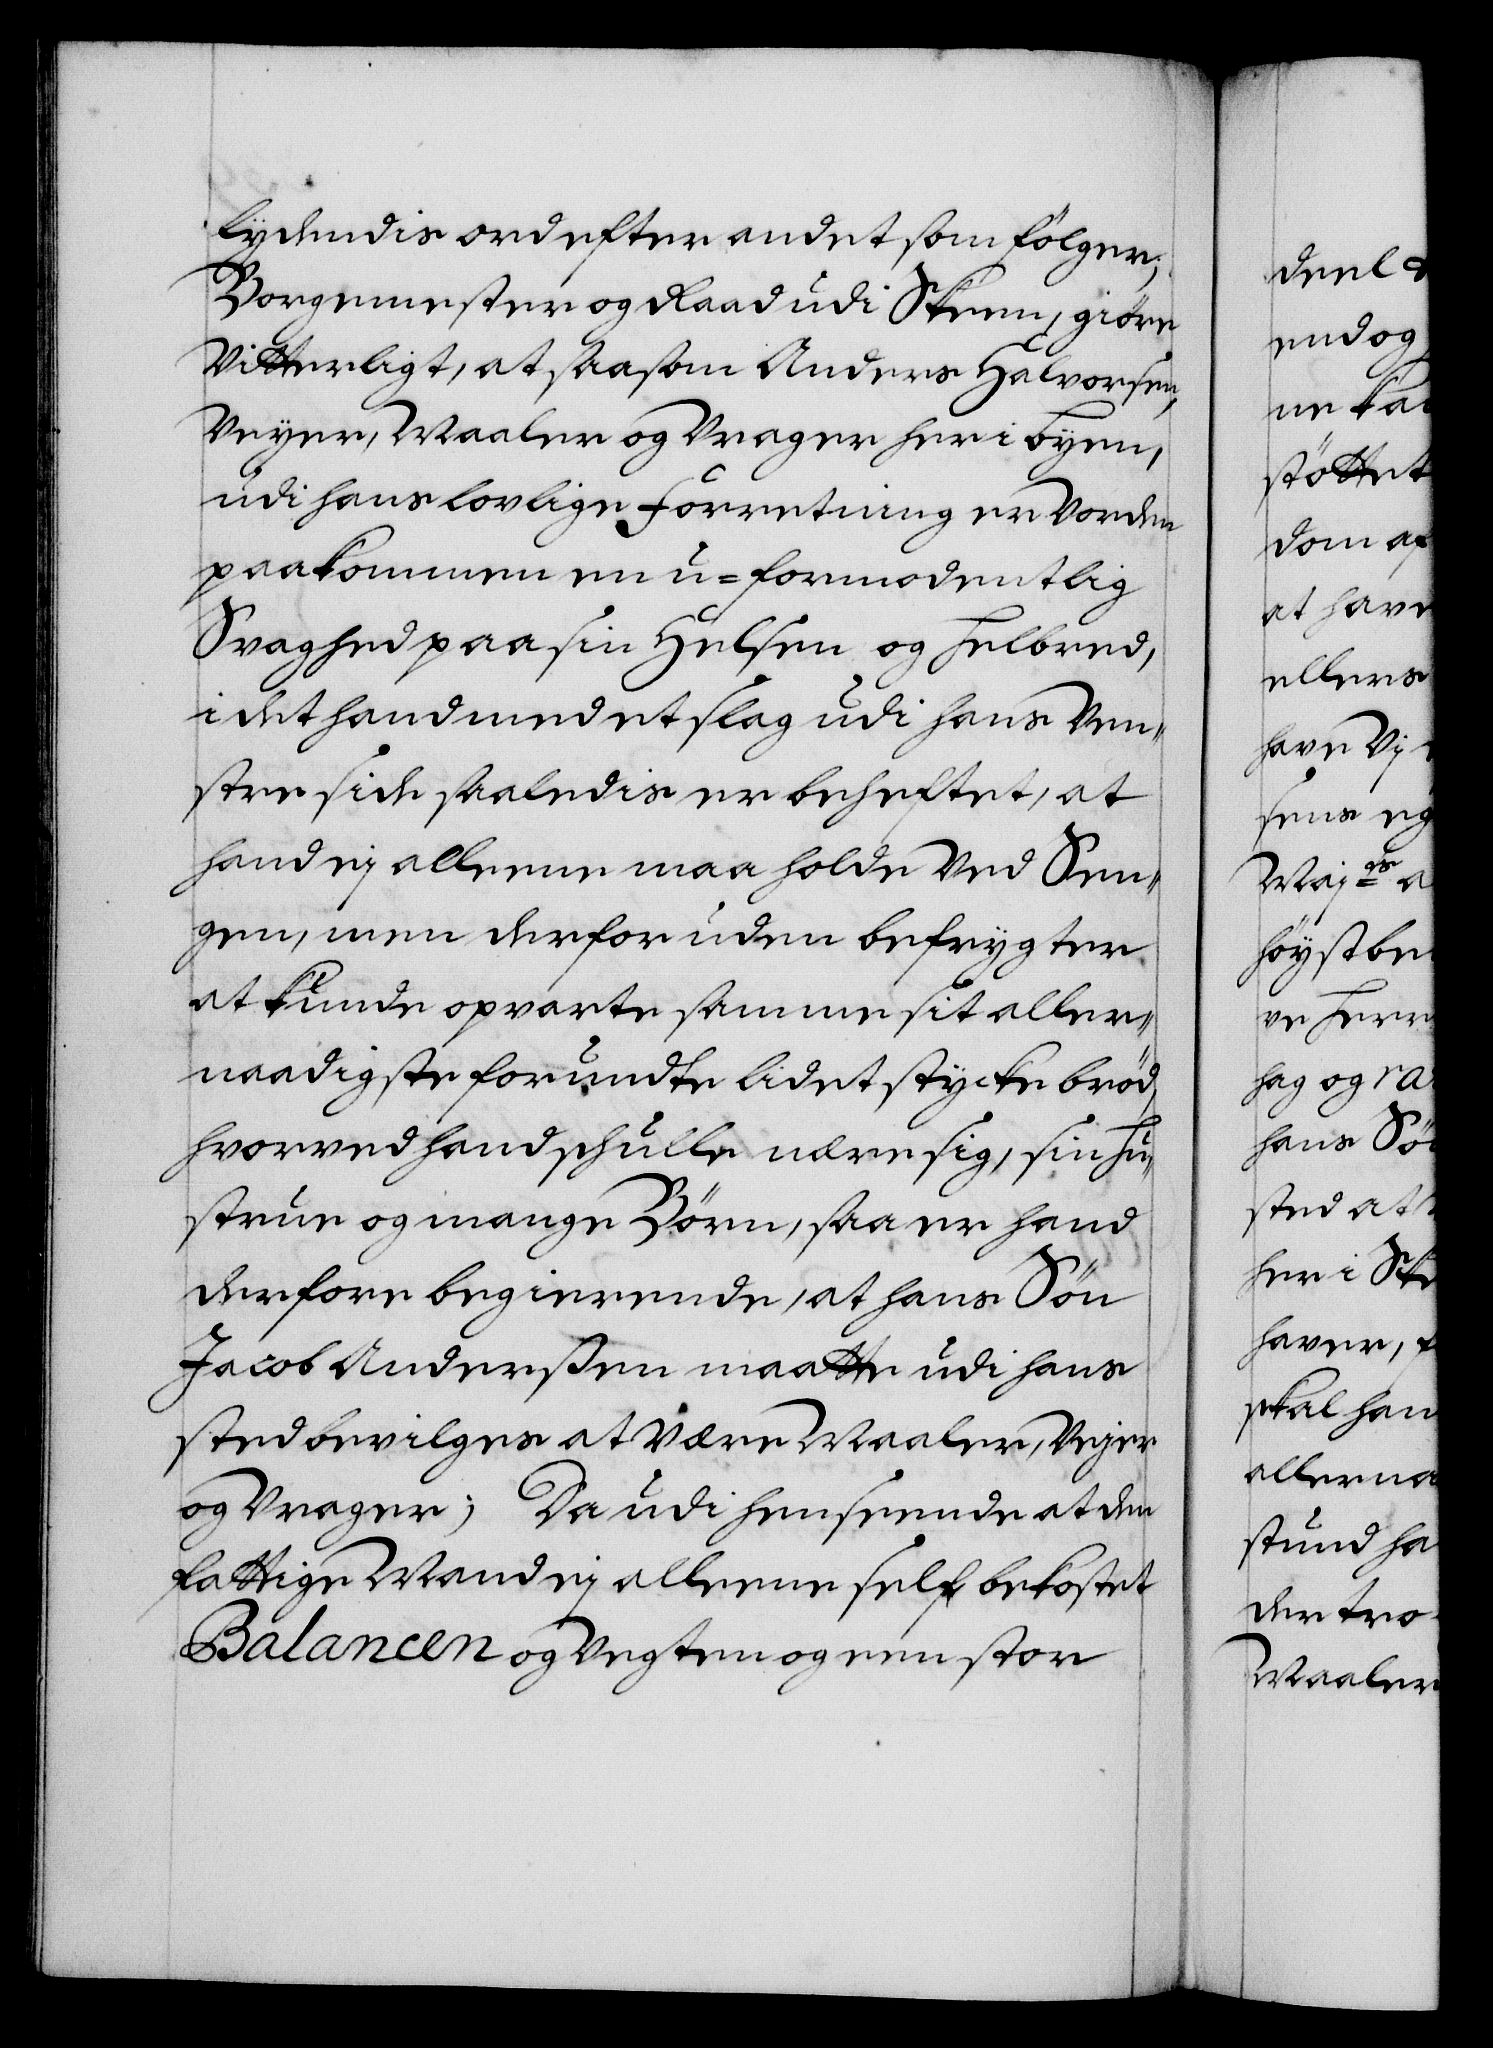 lydendis ord efter andet som følger;
Borgemester og Raad udi Skeen, giöre
Vitterligt, at saasom Anders Halvorsen,
Veyer, Maaler og Vrager her i byen,
udi hans lovlige Forretning er vorden
paakommen en u=formodentlig
Svaghed paa sin Helsen og Helbred,
i det hand med et slag udi hans Ven„
stre side saaledis er beheftet, at
hand ej alleene maa holde ved Sen„
gen, men derforuden befrygter
at kunde opvarte samme sit aller„
naadigste forundte lidet stycke bröd,
hvorved hand schulle nære sig, sin hu„
strue og mange Börn, saa er hand
derfore begierende, at hans Sön
Jacob Anderssen maatte udi hans
sted bevilges at være Maaler, Vejer
og Vrager; Da udi henseende at den
fattige Mand ej alleene self bekostet
Balancen og Vegten og een stor
deel
end og
ne
stöttet
dom af
at have
ellers
have Vj
sens
Maj<sup>ts</sup>
höyst
ve Herr
hag og
hans Sö
sted at
her i Ske
haver,
skal han
allerna
stund ha
der tro
Maaler